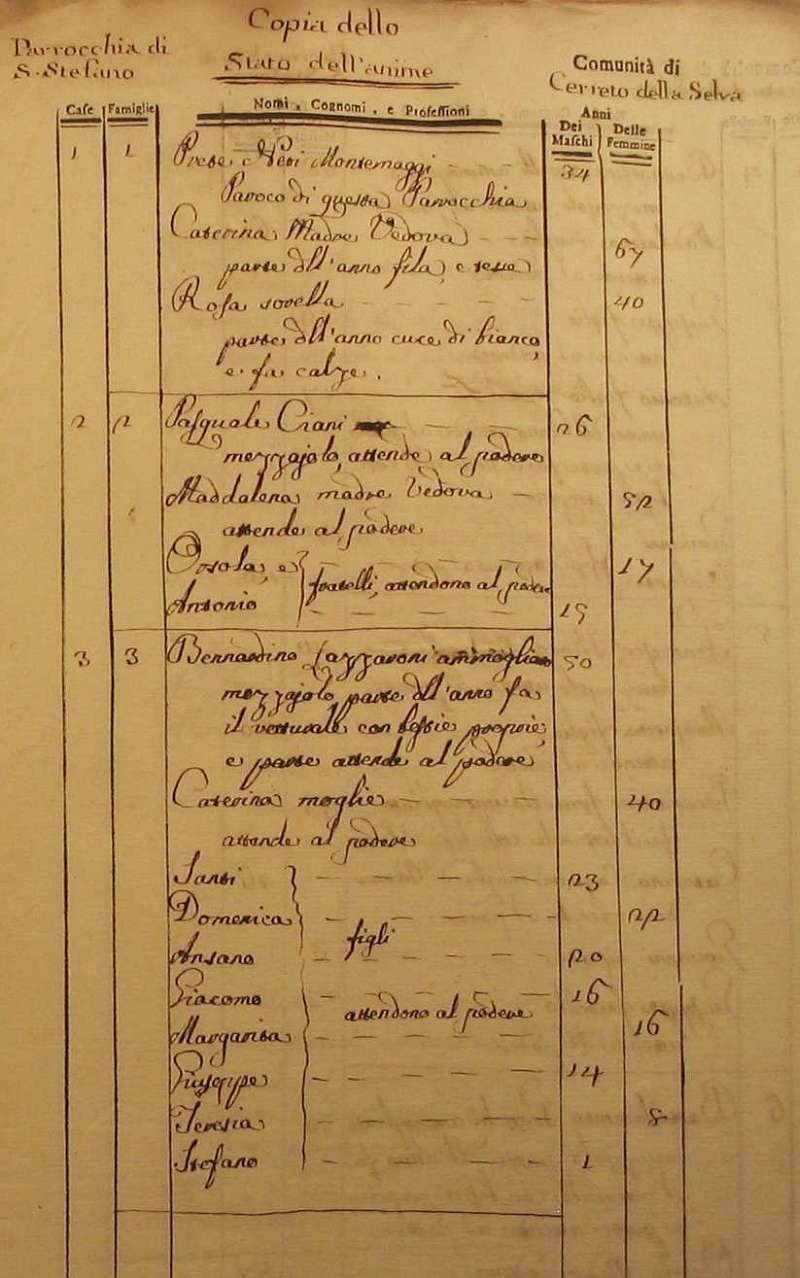 Copia dello
Parrocchia di
S. Stefano
Stato dell'anime
Comunità di
Cerreto della Selva
Case Famiglie Nomi, Cognomi, e Professioni Anni
Dei Maschi Delle Femmine
1 1 Prete Montemaggi 34
Paroco di questa Parrocchia
Caterina Madre Vedova 67
parte dell'anno fila e tesse
Rosa sorella 40
parte dell'anno cuce di bianco
e fa calze.
2 2 Pasquale Ciani 26
mezzajolo attende al podere
Maddalena madre Vedova 52
attende al podere
Orsola e 17
fratelli attendono al podere
Antonio 15
3 3 Bernardino Lazzaroni ammogliato 50
mezzajolo parte dell'anno fa
il vetturale con bestie proprie
e parte attende al podere
Caterina moglie 40
attende al podere
Santi 23
Domenica 22
figli
Ansano 20
Giacomo 16
attendono al podere
Margarita 16
Giuseppe 14
Teresia 8
Stefano 1